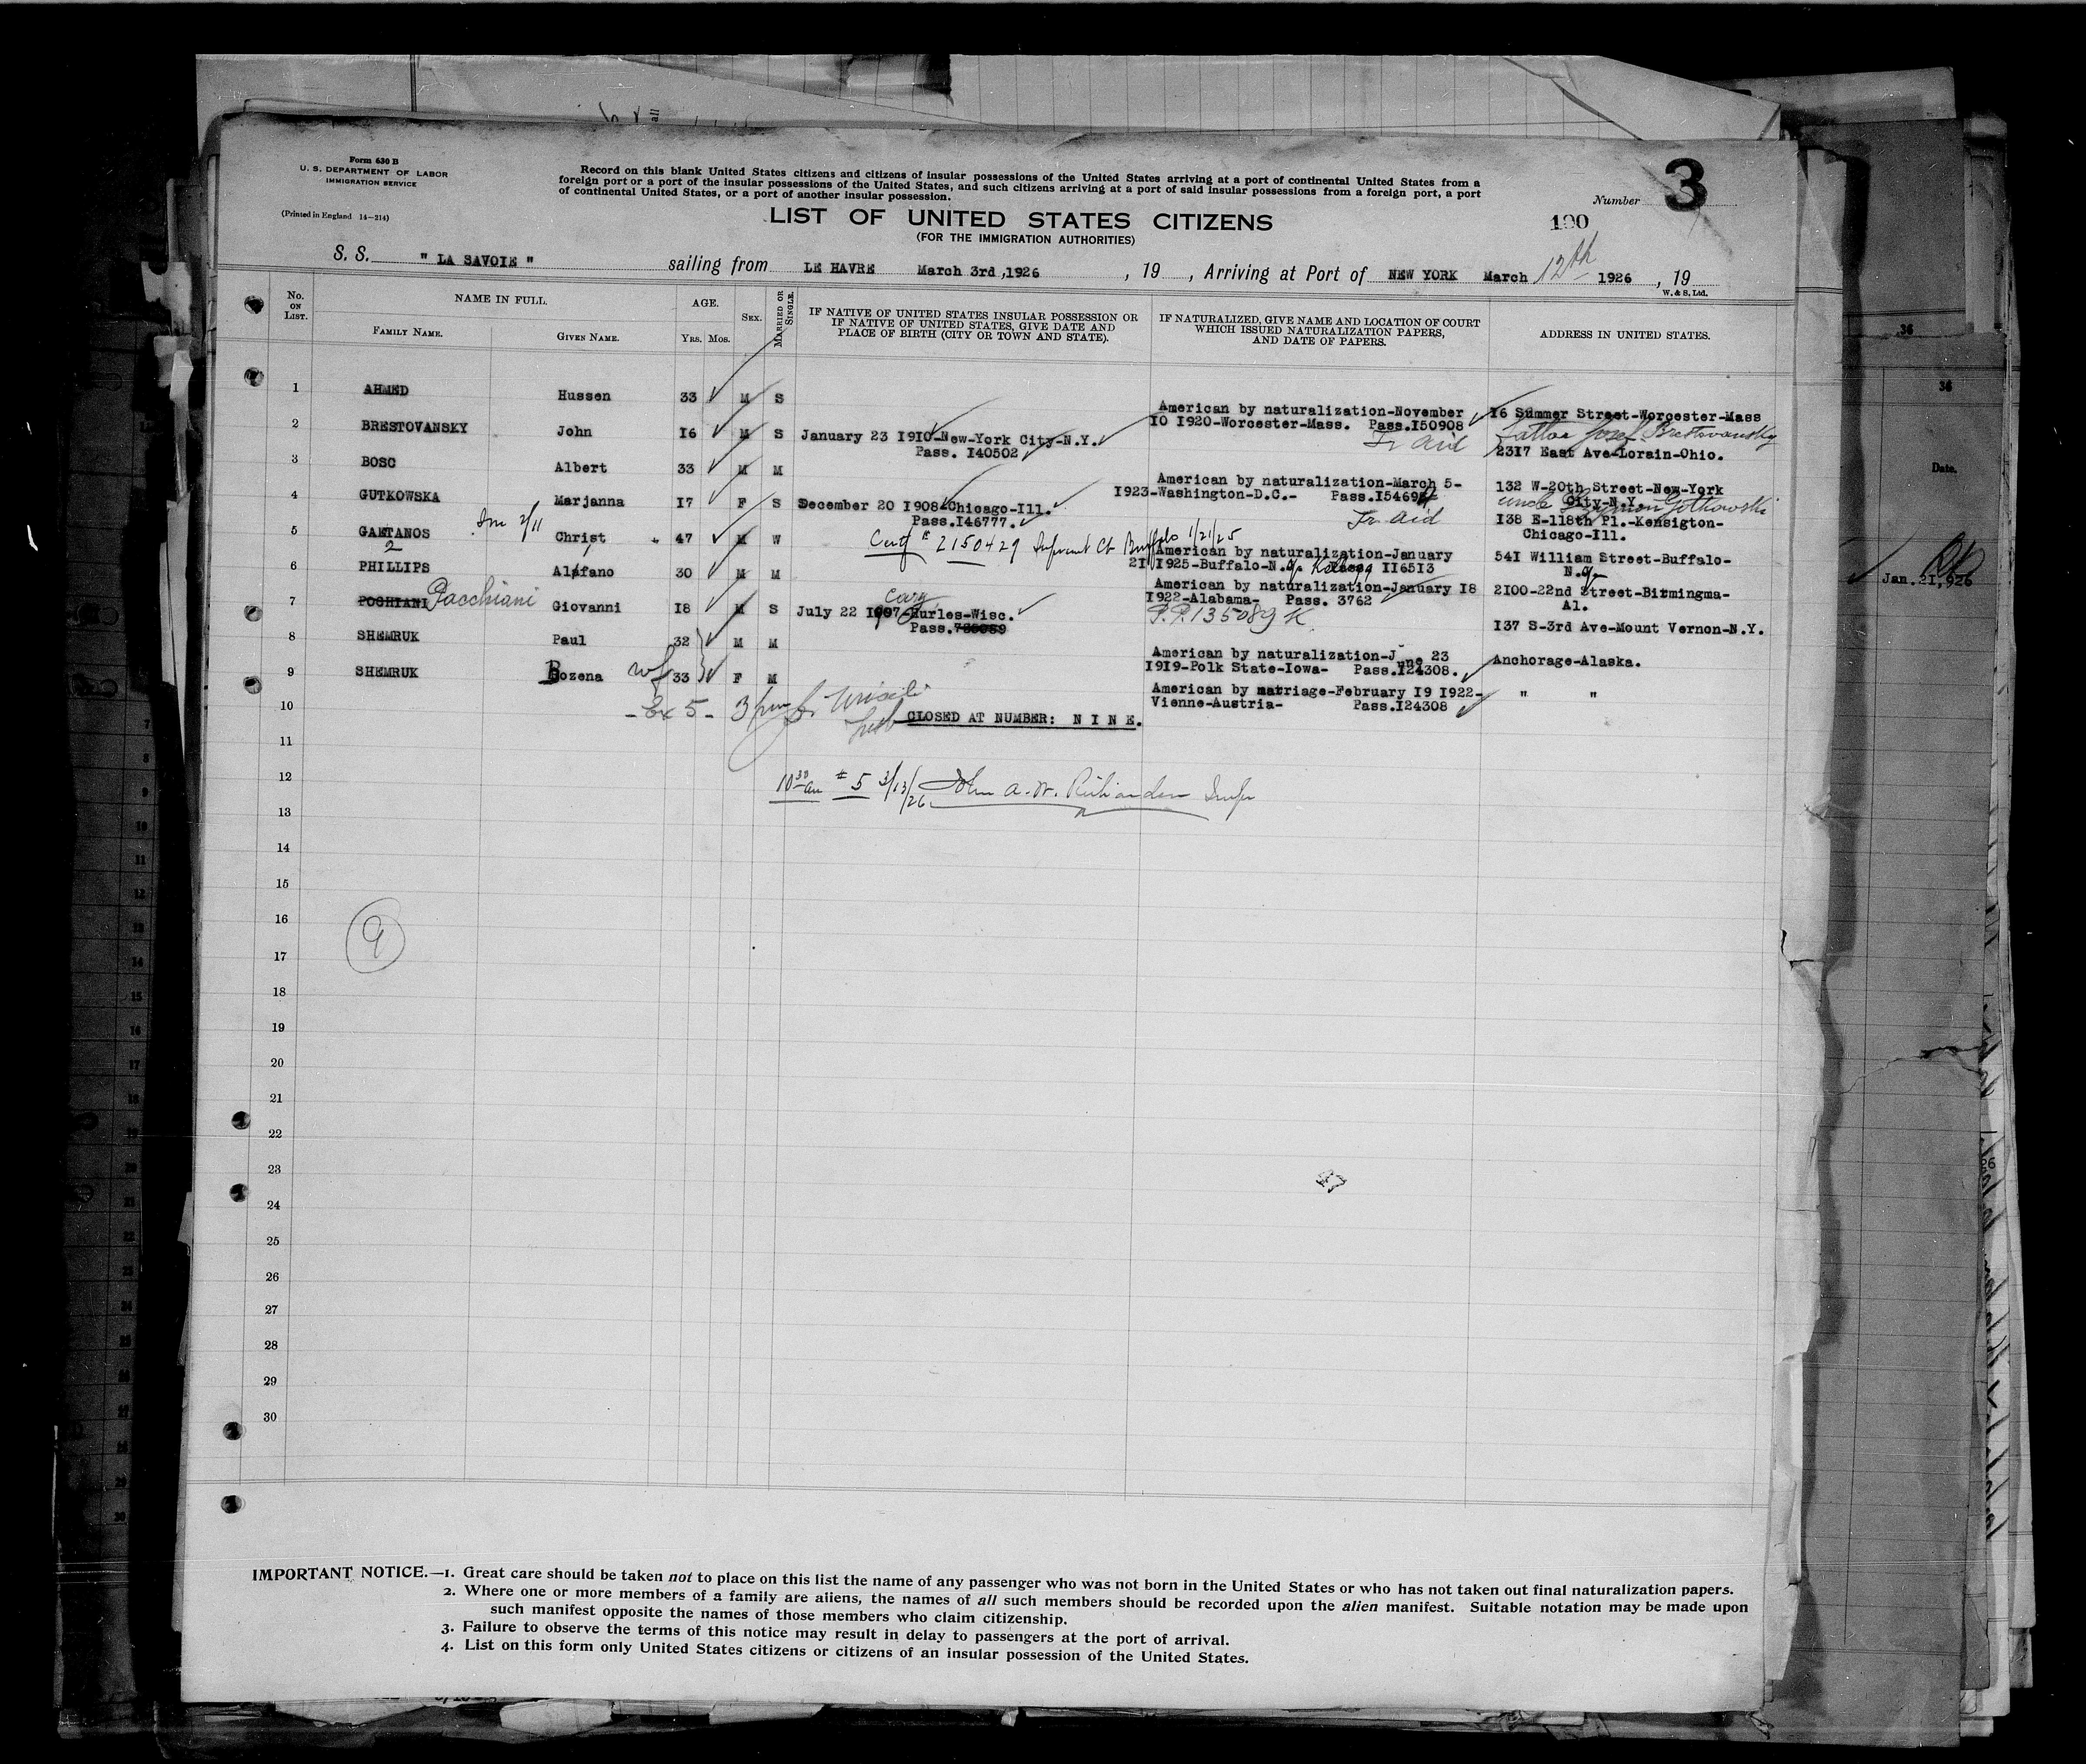 Form 630 B
U. S. DEPARTMENT OF LABOR
IMMIGRATION SERVICE
(Printed in England 14—214)
Record on this blank United States citizens and citizens of insular possessions of the United States arriving at a port of continental United States from a
foreign port or a port of the insular possessions of the United States, and such citizens arriving at a port of said insular possessions from a foreign port, a port
of continental United States, or a port of another insular possession.
Number 3
LIST OF UNITED STATES CITIZENS
(FOR THE IMMIGRATION AUTHORITIES)
190
S. S. " LA SAVOIE " sailing from LE HAVRE March 3rd,1926 , 19 , Arriving at Port of NEW YORK March 12th 1926 , 19
W. & S. Ltd.
No. ON LIST. NAME IN FULL. AGE. SEX. MARRIED OR SINGLE. IF NATIVE OF UNITED STATES INSULAR POSSESSION OR IF NATIVE OF UNITED STATES, GIVE DATE AND PLACE OF BIRTH (CITY OR TOWN AND STATE). IF NATURALIZED, GIVE NAME AND LOCATION OF COURT WHICH ISSUED NATURALIZATION PAPERS, AND DATE OF PAPERS. ADDRESS IN UNITED STATES.
FAMILY NAME. GIVEN NAME. YRS. MOS.
1 AHMED Hussen 33 M S American by naturalization-November
10 1920-Worcester-Mass. Pass.150908 16 Summer Street-Worcester-Mass
2 BRESTOVANSKY John 16 M S January 23 1910-New-York City-N.Y.
Pass. 140502 Tr aid father Josef Brestovansky
2317 East Ave-Lorain-Ohio.
3 BOSC Albert 33 M M American by naturalization-March 5-
1923-Washington-D.C.- Pass.15469 132 W-20th Street-New-York
City-N.Y.
4 GUTKOWSKA Marjanna 17 F S December 20 1908-Chicago-Ill.
Pass.146777. Tr aid uncle Gotkowski
138 E-118th Pl.-Kensigton-
Chicago-Ill.
5 GAETANOS Christ 47 M W Cert # 2150429 Supreme Ct Buffalo 1/21/25
American by naturalization-January
21 1925-Buffalo-N.Y. 116513 541 William Street-Buffalo-
N.Y.
6 PHILLIPS Alafano 30 M M American by naturalization-January 18
1922-Alabama- Pass. 3762 2100-22nd Street-Birmingma-
Al.
7 POCHIANI Pacchiani Giovanni 18 M S July 22 1907-Hurles-Wisc.
Cary
Pass. P.P.135089 K 137 S-3rd Ave-Mount Vernon-N.Y.
8 SHEMRUK Paul 32 M M American by naturalization-June 23
1919-Polk State-Iowa- Pass.124308. Anchorage-Alaska.
9 SHEMRUK Bozena wf 33 F M American by marriage-February 19 1922-
Vienne-Austria- Pass.124308 " "
10 CLOSED AT NUMBER: N I N E.
11
12 10 30 am # 5 3/13/26 John A. W. Richardson Inspr
13
14
15
16
9
17
18
19
20
21
22
23
24
25
26
27
28
29
30
47
36
36
Date.
Jan.21,926
IMPORTANT NOTICE.—1. Great care should be taken not to place on this list the name of any passenger who was not born in the United States or who has not taken out final naturalization papers.
2. Where one or more members of a family are aliens, the names of all such members should be recorded upon the alien manifest. Suitable notation may be made upon
such manifest opposite the names of those members who claim citizenship.
3. Failure to observe the terms of this notice may result in delay to passengers at the port of arrival.
4. List on this form only United States citizens or citizens of an insular possession of the United States.